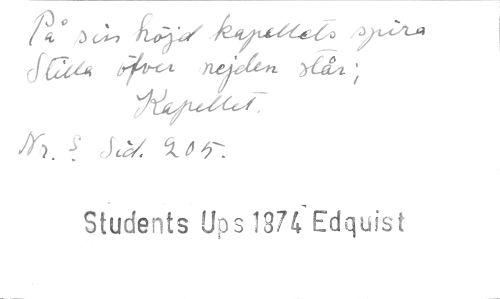 På sin höjd kapellets spira
Stilla öfver nejden står;
Kapellet.
Nr. S. Sid. 205.
Students Ups 1874 Edquist